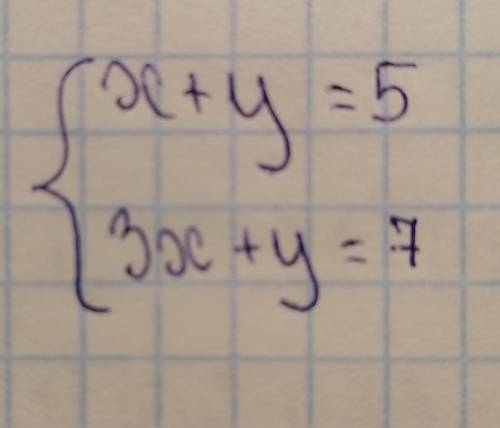 x + y = 5
3x + y = 7